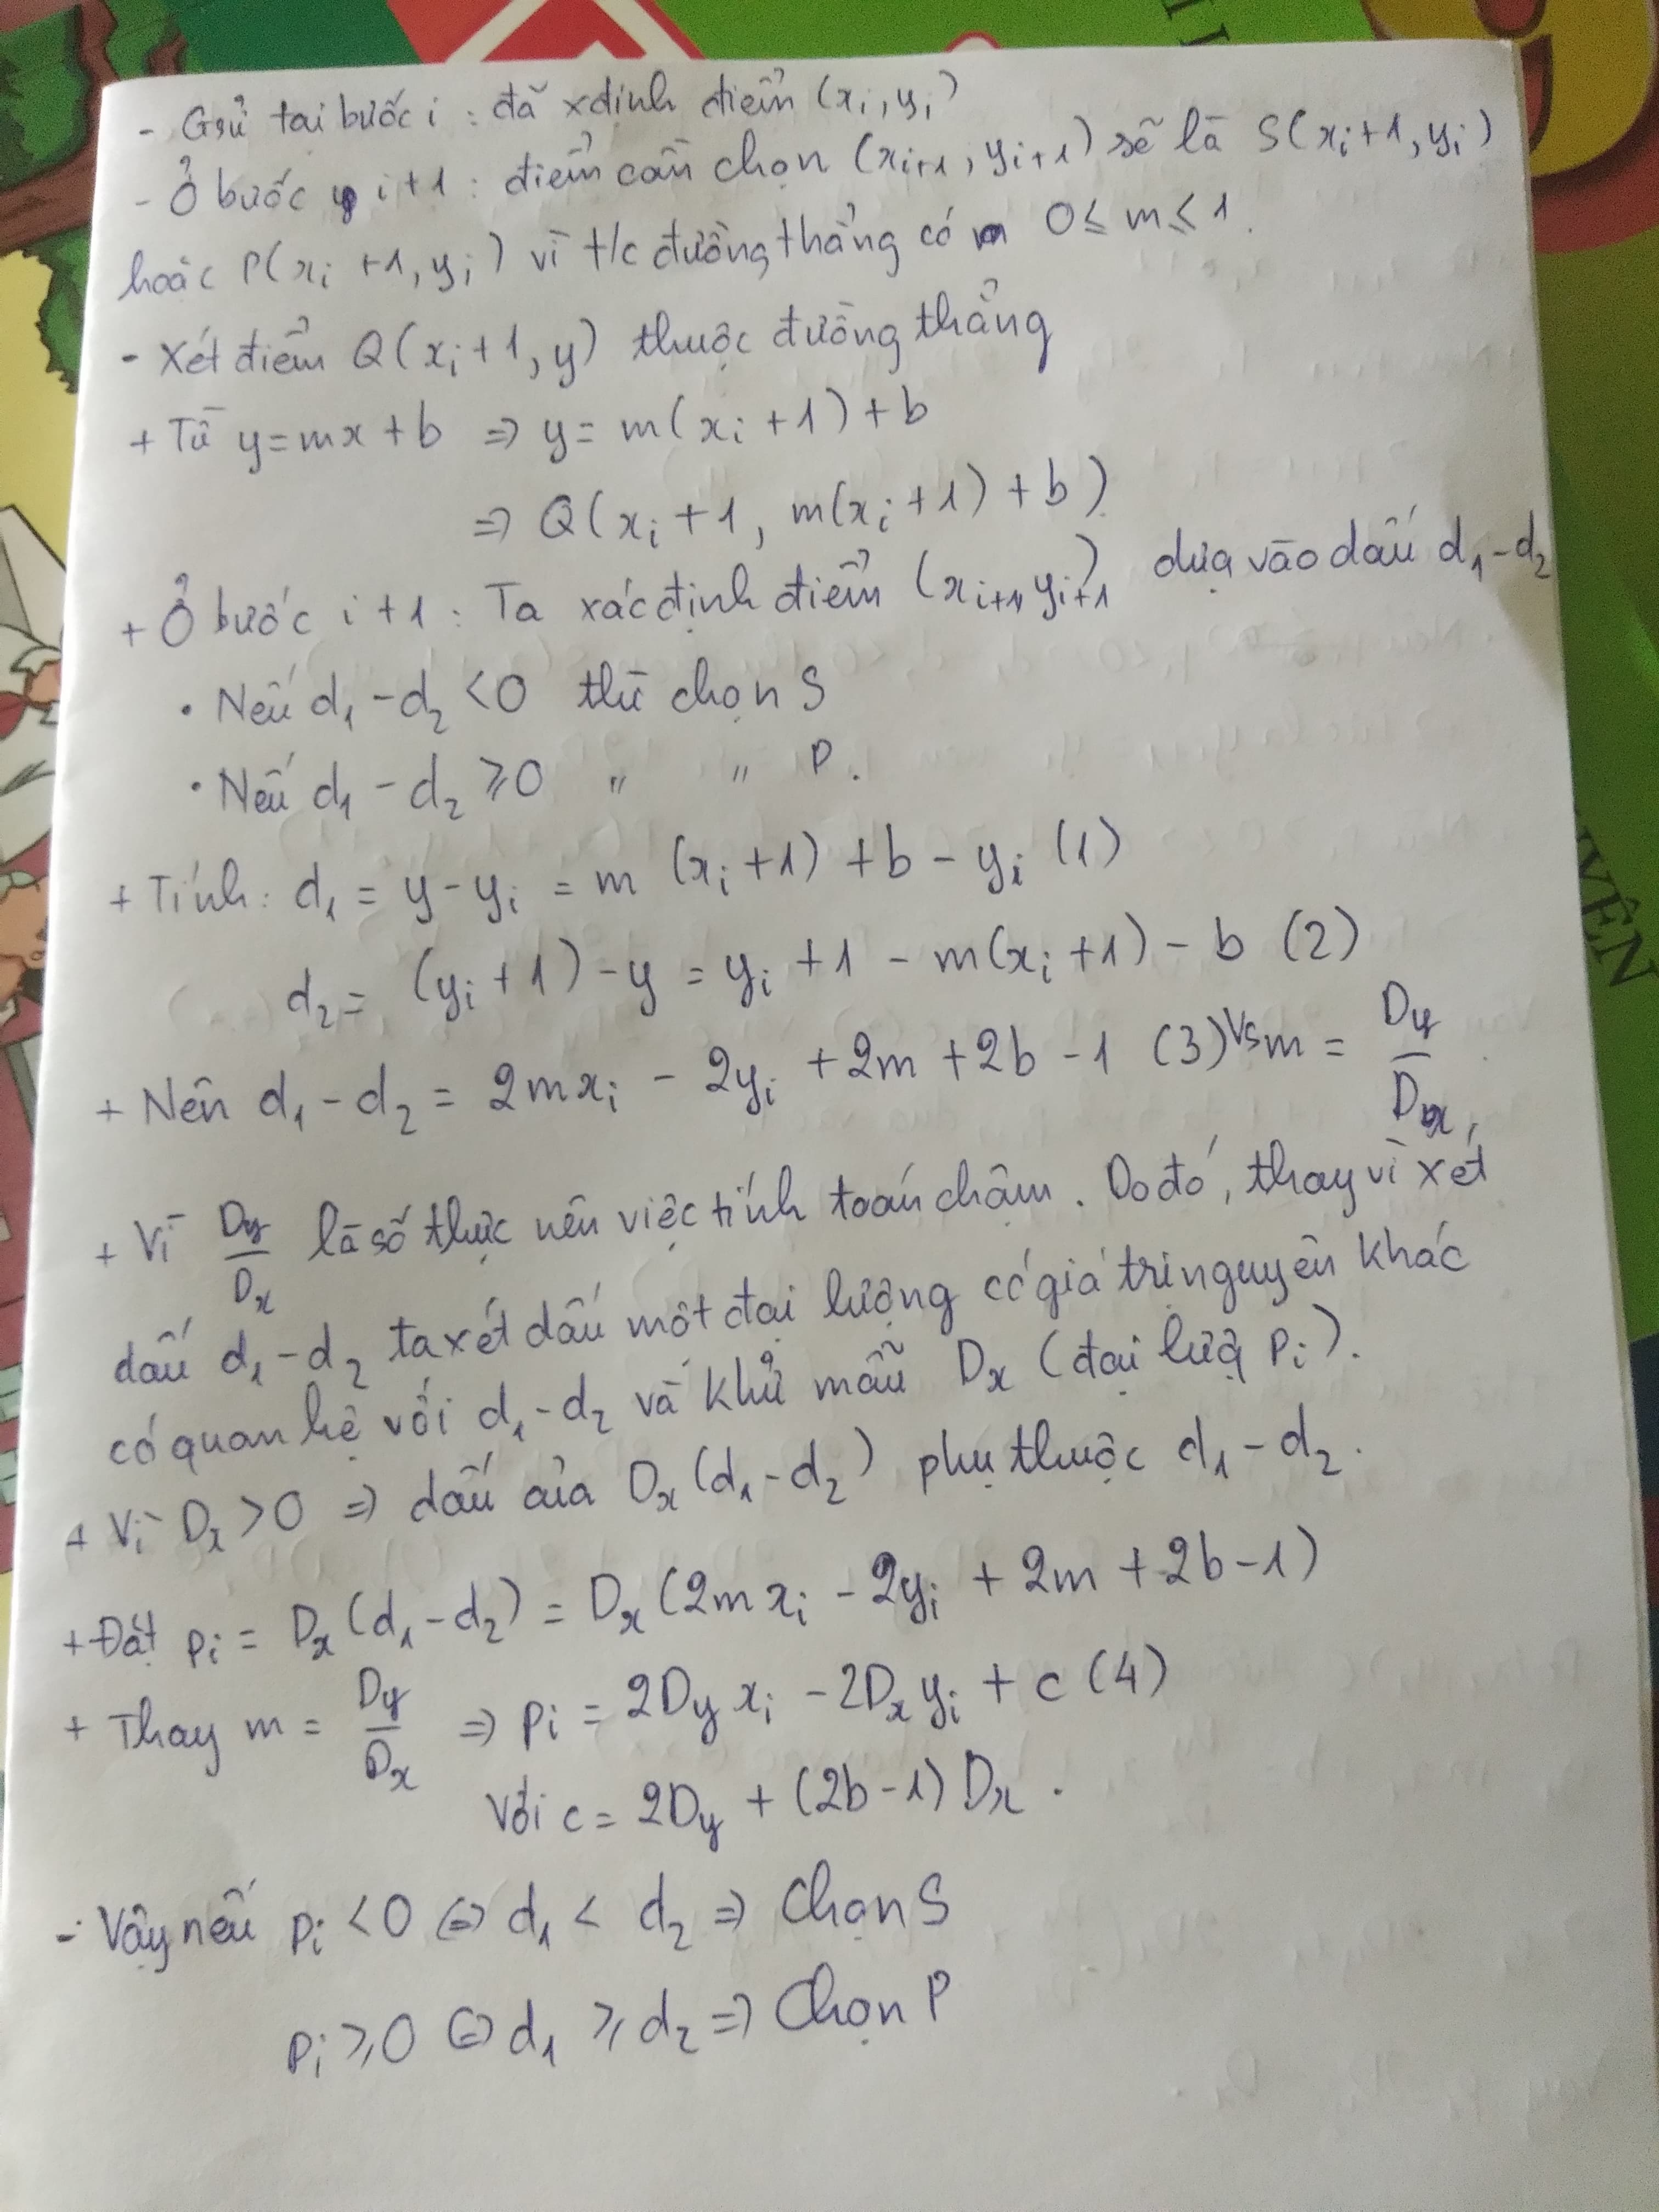 - Gsử tại bước i : đã xđịnh điểm (xᵢ, yᵢ)
- Ở bước i+1 : điểm cần chọn (xᵢ₊₁, yᵢ₊₁) sẽ là S(xᵢ+1, yᵢ)
hoặc P(xᵢ +1, yᵢ) vì t/c đường thẳng có 0 ≤ m ≤ 1.
- Xét điểm Q(xᵢ+1, y) thuộc đường thẳng
+ Từ y=mx+b ⇒ y= m(xᵢ+1)+b
⇒ Q(xᵢ+1, m(xᵢ+1)+b)
+ Ở bước i+1 : Ta xác định điểm (xᵢ₊₁, yᵢ₊₁) dựa vào dấu d₁-d₂
• Nếu d₁-d₂ <0 thì chọn S
• Nếu d₁-d₂ ⩾0 " " P.
+ Tính: d₁ = y-yᵢ = m (xᵢ+1) +b - yᵢ (1)
d₂= (yᵢ+1)-y = yᵢ +1 - m(xᵢ+1) - b (2)
+ Nên d₁-d₂ = 2mxᵢ - 2yᵢ +2m+2b-1 (3) Vs m = Dy/Dx
+ Vì Dy/Dx là số thực nên việc tính toán chậm. Do đó, thay vì xét
dấu d₁-d₂ ta xét dấu một đại lượng có giá trị nguyên khác
có quan hệ với d₁-d₂ và khử mẫu Dx (đại lượg pᵢ).
+ Vì Dx >0 ⇒ dấu của Dx(d₁-d₂) phụ thuộc d₁-d₂.
+ Đặt pᵢ = Dx(d₁-d₂) = Dx(2mxᵢ -2yᵢ +2m+2b-1)
+ Thay m = Dy/Dx ⇒ pᵢ = 2Dy xᵢ -2Dx yᵢ + c (4)
Với c= 2Dy + (2b-1) Dx.
- Vậy nếu pᵢ <0 ⇔ d₁ < d₂ ⇒ Chọn S
pᵢ ⩾0 ⇔ d₁ ⩾ d₂ ⇒ Chọn P
YÊN